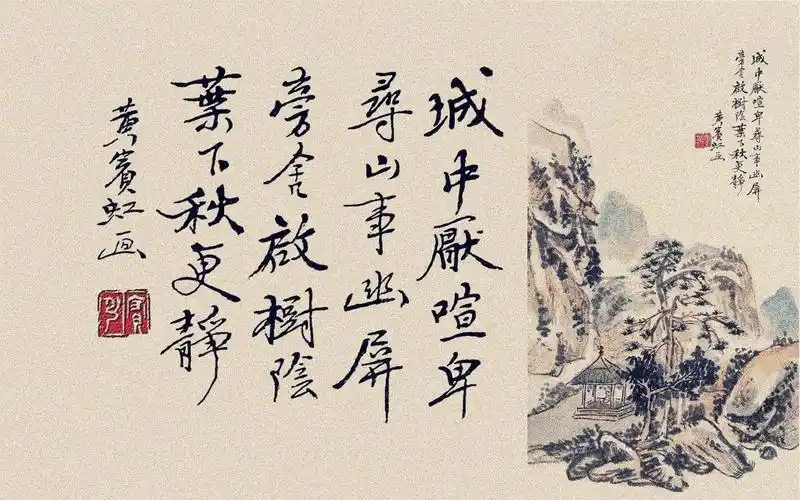 城中厭喧卑
尋山事幽屏
旁舍啟樹陰
葉下秋更靜
黃賓虹画
城中厭喧卑尋山事幽屏
旁舍啟樹陰葉下秋更靜
黃賓虹画